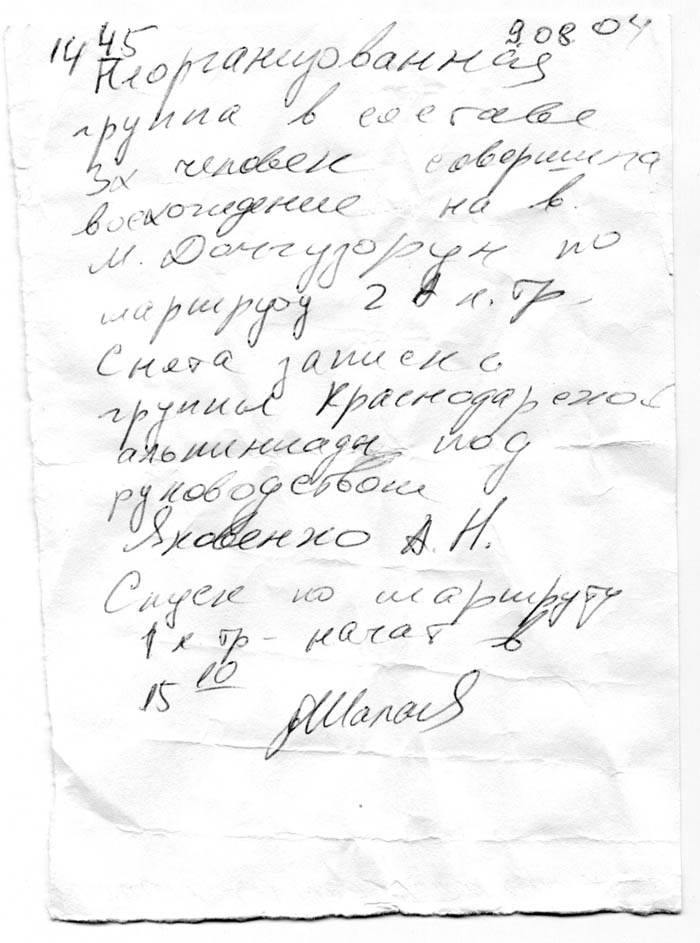 14 45 9 08 04
Неорганизованная
группа в составе
3х человек совершила
восхождение на в.
М. Донгузорун по
маршруту 2 А к. тр.
Снята записка
группы Краснодарской
альпиниады под
руководством
Яковенко А. Н.
Спуск по маршруту
1 к тр- начат в
15 10